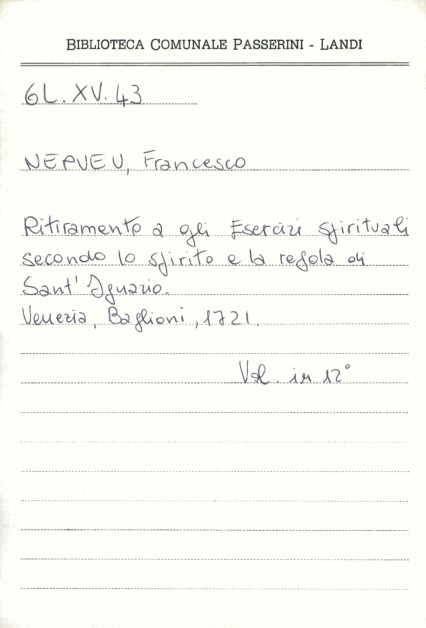 BIBLIOTECA COMUNALE PASSERINI - LANDI
6L. XV. 43
NEPVEU, Francesco
Ritiramento a gli Esercizi spirituali
secondo lo spirito e la regola di
Sant' Ignazio.
Venezia, Baglioni, 1721.
Vol. in 12°